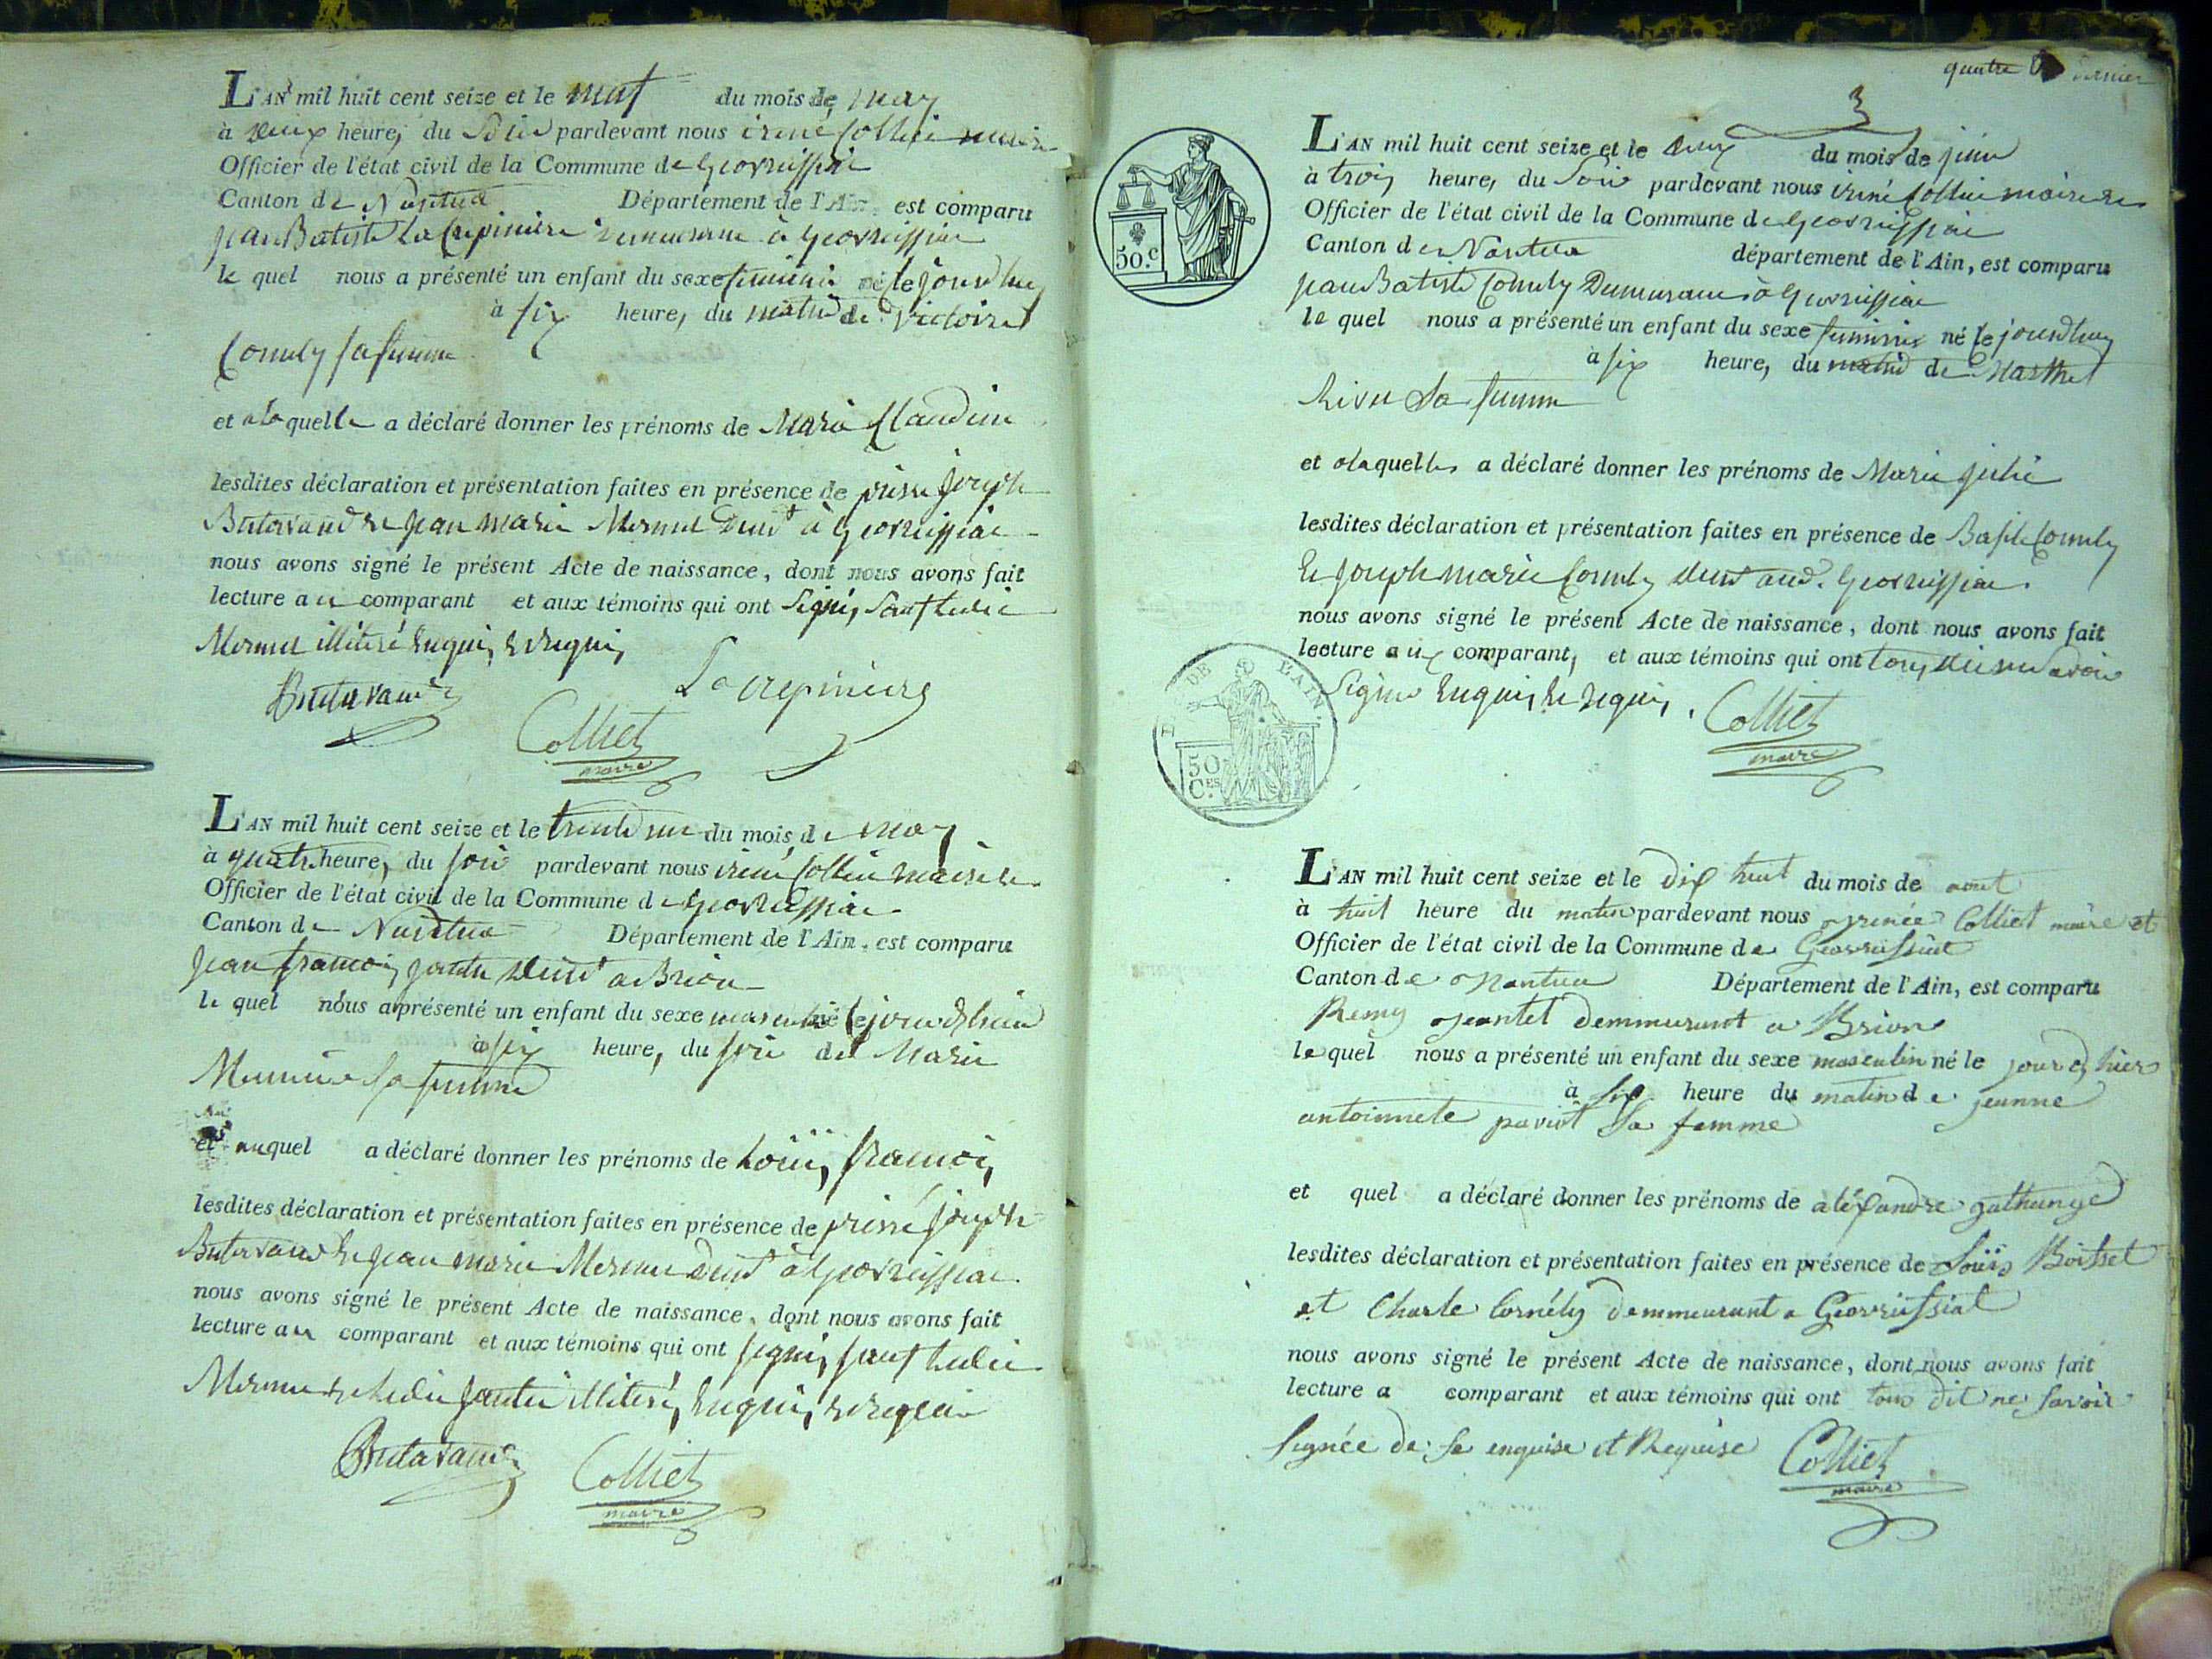 L'AN mil huit cent seize et le neuf du mois de may
à deux heures du Soir pardevant nous irené Colliet maire
Officier de l'état civil de la Commune de Geovreissiat
Canton de Nantua Département de l'Ain, est comparu
jean Batiste La Crepiniere demeurant à Geovreissiat
le quel nous a présenté un enfant du sexe feminin né le jourdhuy
à six heures du matin de Victoire
Cornely sa femme
et a la quelle a déclaré donner les prénoms de Marie Claudine
lesdites déclaration et présentation faites en présence de pierre joseph
Butavand et jean marie Mermet Demt à Geovreissiat
nous avons signé le présent Acte de naissance, dont nous avons fait
lecture au comparant et aux témoins qui ont signé, sauf ledit
Mermet illiteré Enquis et requis
Butavand
Lacrepiniere
Colliet
maire
L'AN mil huit cent seize et le trente un du mois de may
à quatre heures du soir pardevant nous irené Colliet maire et
Officier de l'état civil de la Commune de Geovreissiat
Canton de Nantua Département de l'Ain, est comparu
jean francois jantet Demt a Brion
le quel nous a présenté un enfant du sexe masculin né le jour d'hier
à six heure, du soir de Marie
sa femme
et auquel a déclaré donner les prénoms de Loüis francois
lesdites déclaration et présentation faites en présence de pierre joseph
Butavand et jean marie Mermet Demt à Geovreissiat
nous avons signé le présent Acte de naissance, dont nous avons fait
lecture au comparant et aux témoins qui ont signé, sauf ledit
Mermet et ledit jantet illiteré, Enquis, et requis
Butavand
Colliet
maire
quatre dernier
3
50.c
L'AN mil huit cent seize et le deux du mois de juin
à trois heures du Soir pardevant nous irené Colliet maire et
Officier de l'état civil de la Commune de Geovreissiat
Canton de Nantua département de l'Ain, est comparu
jean Batiste Cornely Demeurant à Geovreissiat
le quel nous a présenté un enfant du sexe feminin né le jourdhuy
à six heure, du matin de Marthe
Sa femme
et a laquelle a déclaré donner les prénoms de Marie julie
lesdites déclaration et présentation faites en présence de Basile Cornely
Et joseph marie Cornely demt aud. Geovreissiat
nous avons signé le présent Acte de naissance, dont nous avons fait
lecture aux comparant, et aux témoins qui ont tous dit ne savoir
signer Enquis et requis.
Colliet
maire
DE L'AIN.
50
C.ES
L'AN mil huit cent seize et le dix huit du mois de aout
à huit heure du matin pardevant nous yrenée Colliet maire et
Officier de l'état civil de la Commune de Geovreissiat
Canton de Nantua Département de l'Ain, est comparu
Remy jeantet demmeurant a Brion
le quel nous a présenté un enfant du sexe masculin né le jour d'hier
à six heure du matin de jeanne
antoinnete paviot Sa femme
et quel a déclaré donner les prénoms de aléxandre
lesdites déclaration et présentation faites en présence de Loüis Boisset
et Charle Cornély demmeurant a Geovreissiat
nous avons signé le présent Acte de naissance, dont nous avons fait
lecture a comparant et aux témoins qui ont tous dit ne savoir
signée de se enquise et Requise
Colliet
maire